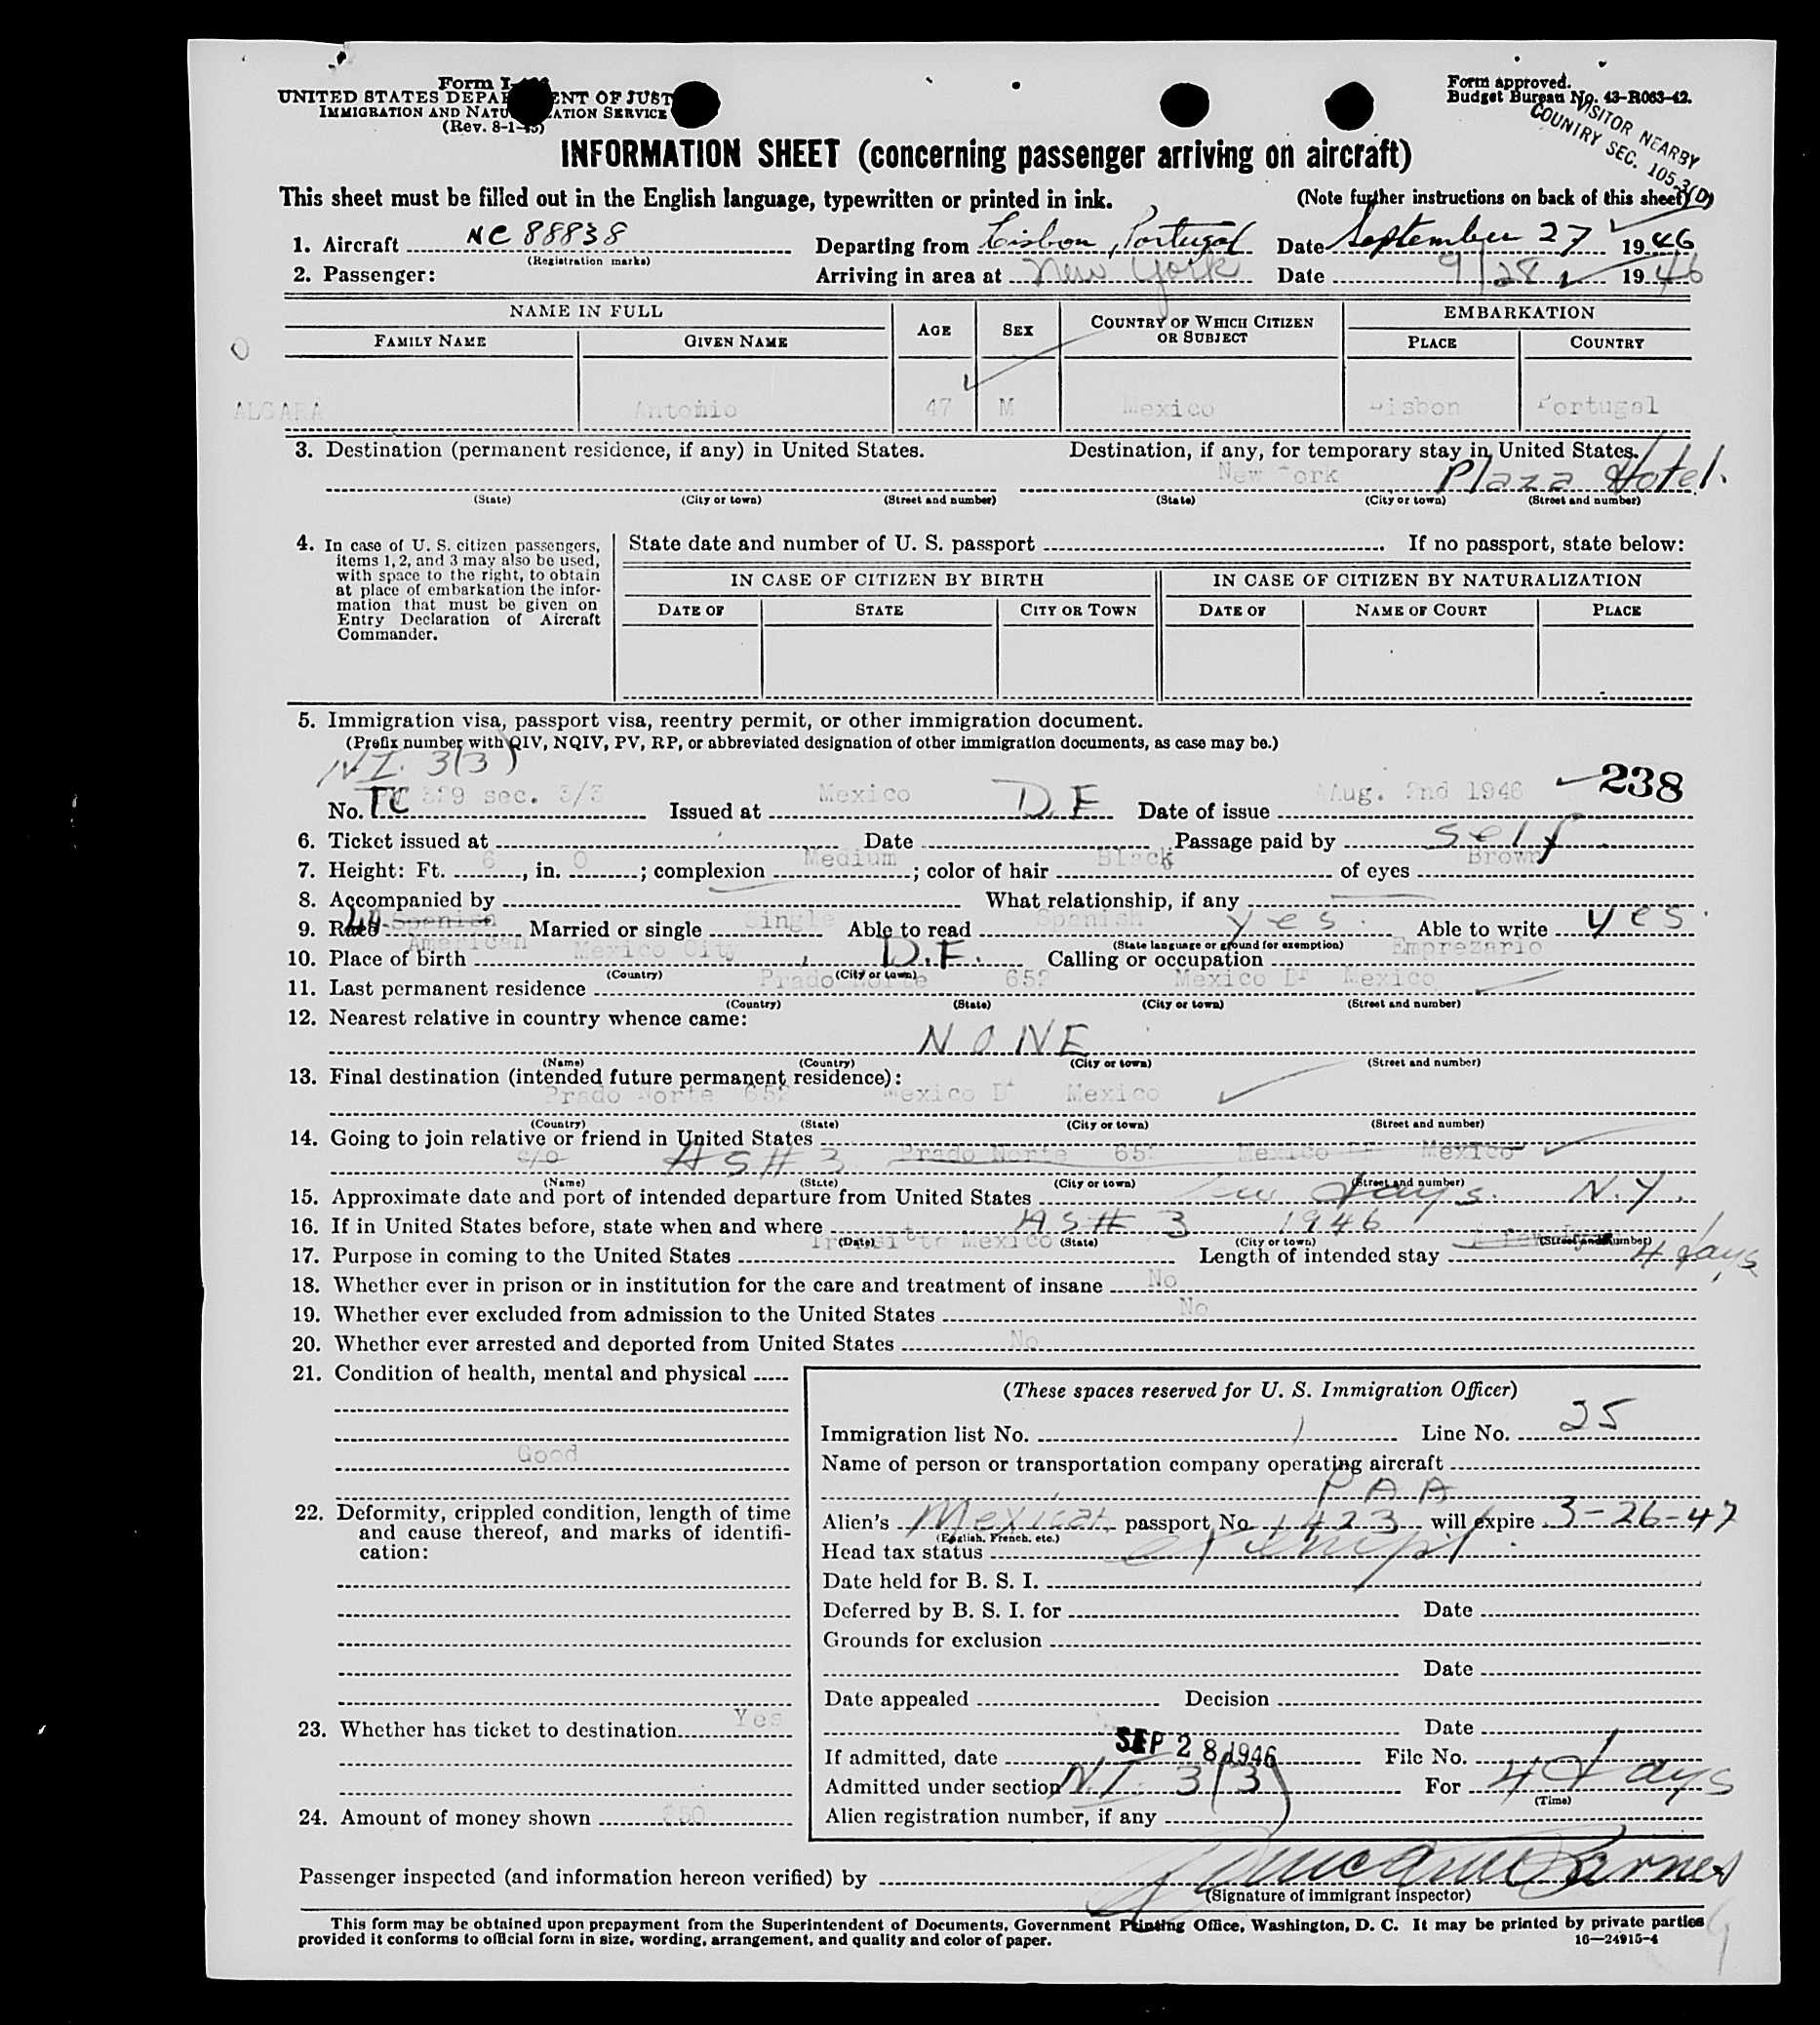 Form I-
UNITED STATES DEPA ENT OF JUST
IMMIGRATION AND NATU ATION SERVICE
(Rev. 8-1-45)
Form approved.
Budget Bureau No. 43-R063-42.
VISITOR NEARBY
COUNTRY SEC. 105.3(D)
INFORMATION SHEET (concerning passenger arriving on aircraft)
This sheet must be filled out in the English language, typewritten or printed in ink. (Note further instructions on back of this sheet)
1. Aircraft NC 88838 Departing from Lisbon, Portugal Date September 27 1946
(Registration marks)
2. Passenger: Arriving in area at New York Date 9/28 1946
NAME IN FULL AGE SEX COUNTRY OF WHICH CITIZEN OR SUBJECT EMBARKATION
FAMILY NAME GIVEN NAME PLACE COUNTRY
ALGARA Antonio 47 M Mexico Lisbon Portugal
3. Destination (permanent residence, if any) in United States. Destination, if any, for temporary stay in United States.
New York Plaza Hotel.
(State) (City or town) (Street and number) (State) (City or town) (Street and number)
4. In case of U. S. citizen passengers, items 1, 2, and 3 may also be used, with space to the right, to obtain at place of embarkation the information that must be given on Entry Declaration of Aircraft Commander.
State date and number of U. S. passport . If no passport, state below:
IN CASE OF CITIZEN BY BIRTH IN CASE OF CITIZEN BY NATURALIZATION
DATE OF STATE CITY OR TOWN DATE OF NAME OF COURT PLACE
5. Immigration visa, passport visa, reentry permit, or other immigration document.
(Prefix number with QIV, NQIV, PV, RP, or abbreviated designation of other immigration documents, as case may be.)
N.I. 3(3)
No. TC 329 sec. 3/3 Issued at Mexico D.F. Date of issue Aug. 2nd 1946 238
6. Ticket issued at Date Passage paid by self
7. Height: Ft. 6, in. 0; complexion Medium; color of hair Black of eyes Brown
8. Accompanied by What relationship, if any
9. Race Spanish American Married or single Single Able to read Spanish yes. Able to write yes.
(State language or ground for exemption)
10. Place of birth Mexico City, D.F. Calling or occupation Emprezario
(Country) (City or town)
11. Last permanent residence Prado Norte 652 Mexico DF Mexico
(Country) (State) (City or town) (Street and number)
12. Nearest relative in country whence came:
NONE
(Name) (Country) (City or town) (Street and number)
13. Final destination (intended future permanent residence):
Prado Norte 652 Mexico DF Mexico
(Country) (State) (City or town) (Street and number)
14. Going to join relative or friend in United States
c/o AS # 3 Prado Norte 652 Mexico DF Mexico
(Name) (State) (City or town) (Street and number)
15. Approximate date and port of intended departure from United States few days. N.Y.
16. If in United States before, state when and where AS # 3 1946
(Date) (State) (City or town) (Street and number)
17. Purpose in coming to the United States Transit to Mexico Length of intended stay 4 days
18. Whether ever in prison or in institution for the care and treatment of insane No
19. Whether ever excluded from admission to the United States No
20. Whether ever arrested and deported from United States No
21. Condition of health, mental and physical
Good
22. Deformity, crippled condition, length of time and cause thereof, and marks of identification:
23. Whether has ticket to destination Yes
24. Amount of money shown $50
(These spaces reserved for U. S. Immigration Officer)
Immigration list No. 1 Line No. 25
Name of person or transportation company operating aircraft
PAA
Alien's Mexican passport No. 1423 will expire 3-26-47
(English, French, etc.)
Head tax status exempt
Date held for B. S. I.
Deferred by B. S. I. for Date
Grounds for exclusion
Date
Date appealed Decision
Date
If admitted, date SEP 28 1946 File No.
Admitted under section N.I. 3(3) For 4 days
(Time)
Alien registration number, if any
Passenger inspected (and information hereon verified) by
(Signature of immigrant inspector)
This form may be obtained upon prepayment from the Superintendent of Documents, Government Printing Office, Washington, D. C. It may be printed by private parties
provided it conforms to official form in size, wording, arrangement, and quality and color of paper. 16—24915-4